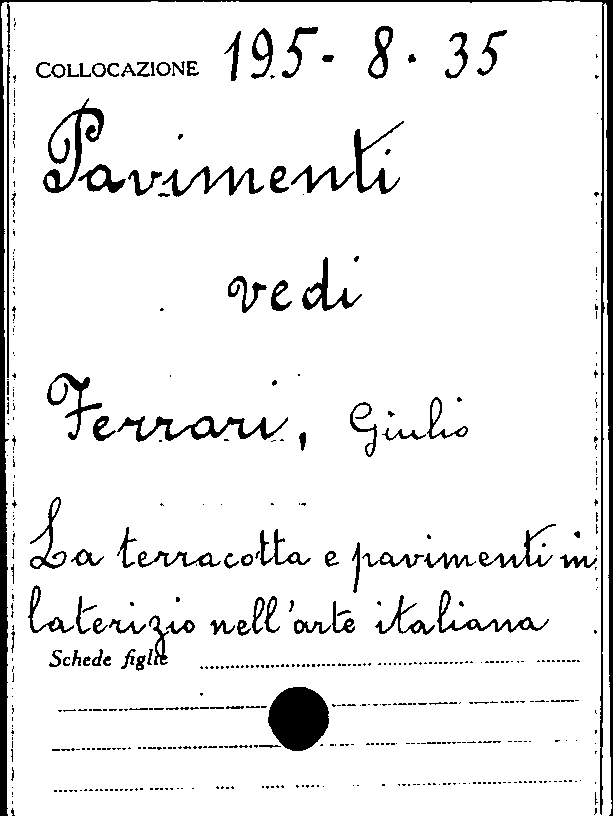 COLLOCAZIONE 195-8.35
Pavimenti
vedi
Ferrari, Giulio
La terracotta e pavimenti in
laterizio nell'arte italiana
Schede figlie